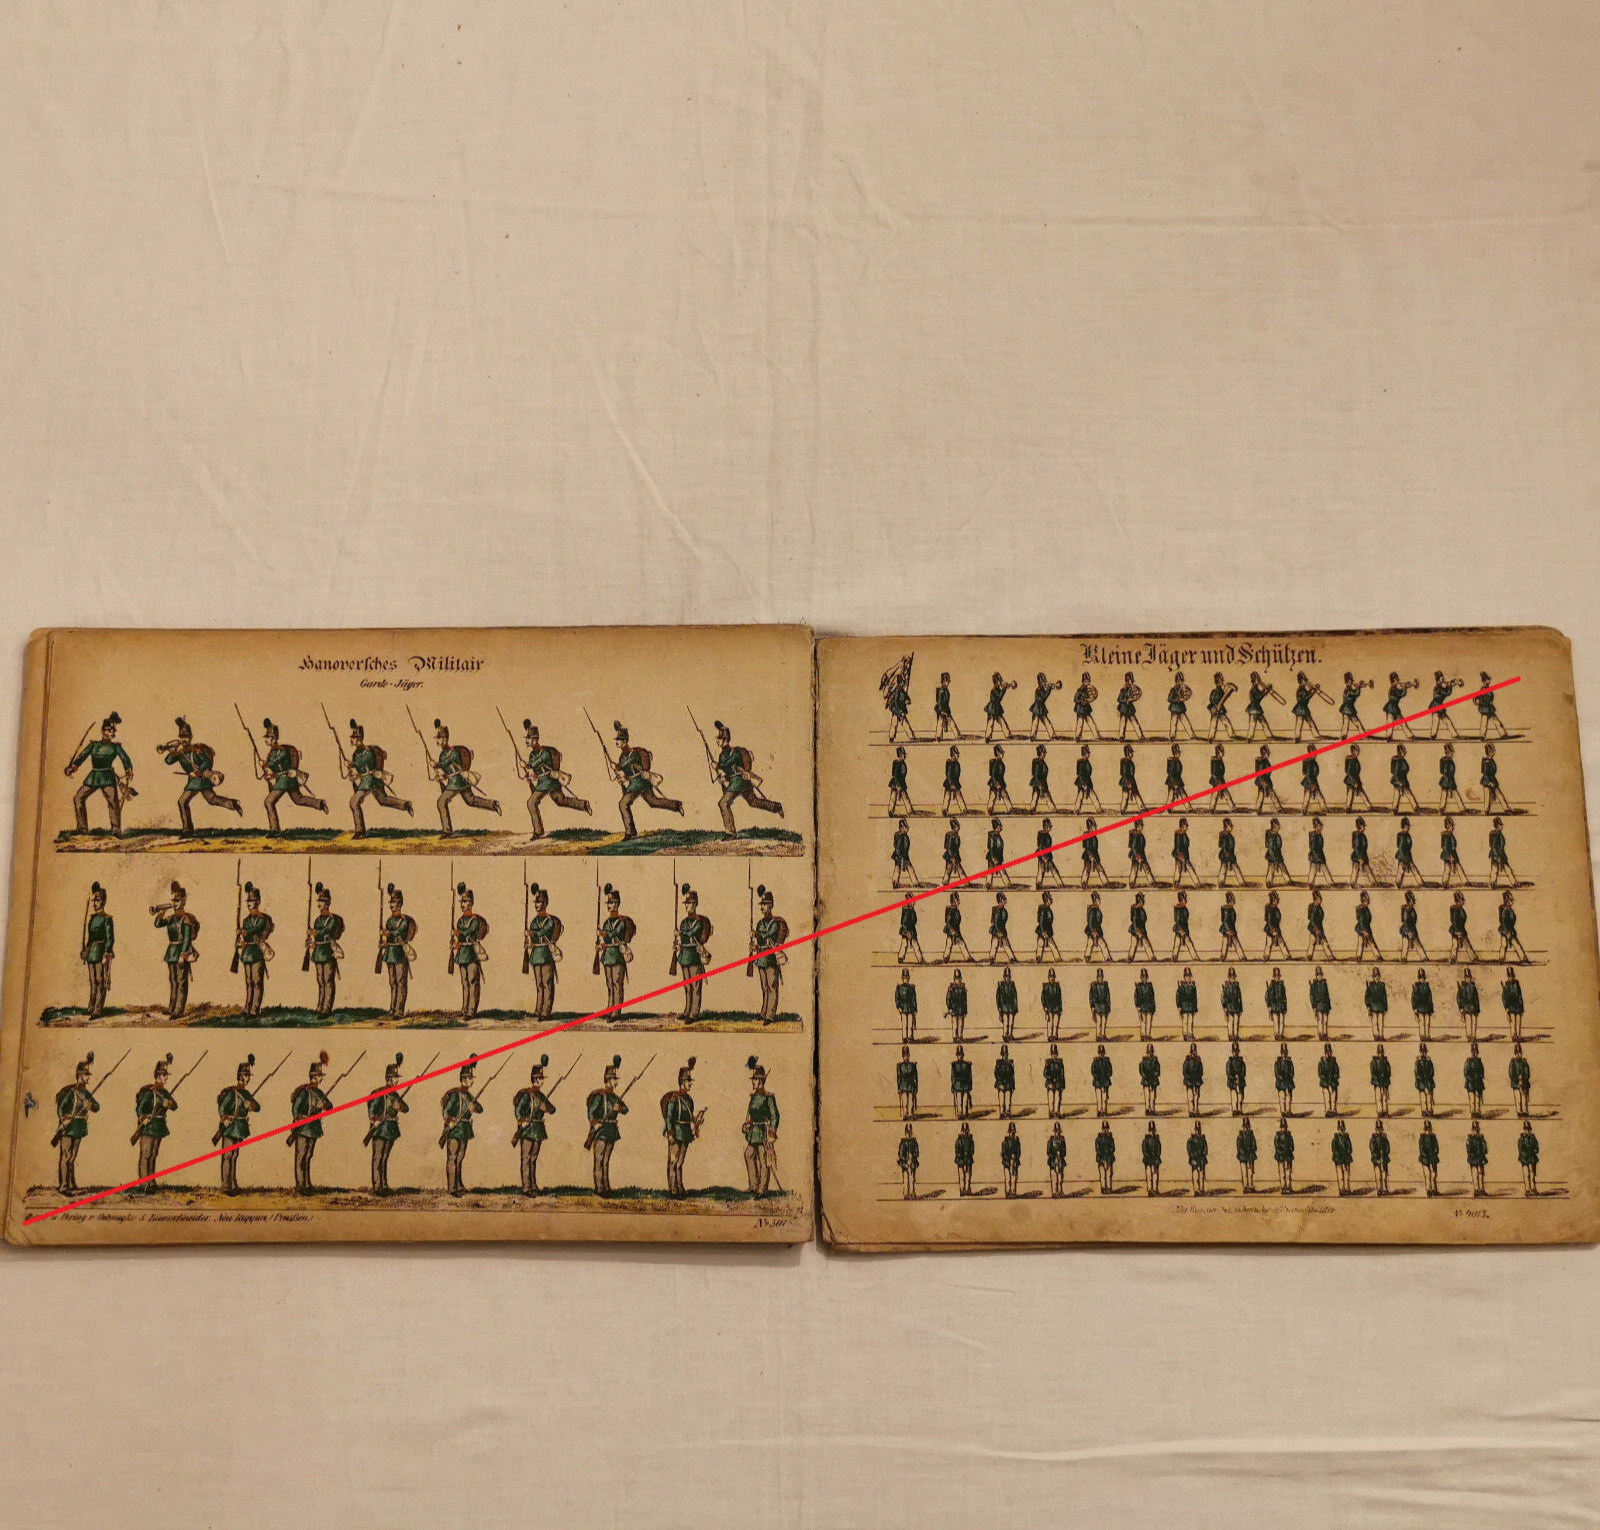 Hanoversches Militair
Garde-Jäger.
Verlag v. Oehmigke & Riemschneider. Neu-Ruppin (Preußen)
Kleine Jäger und Schützen.
Neu Ruppin
No 4013.